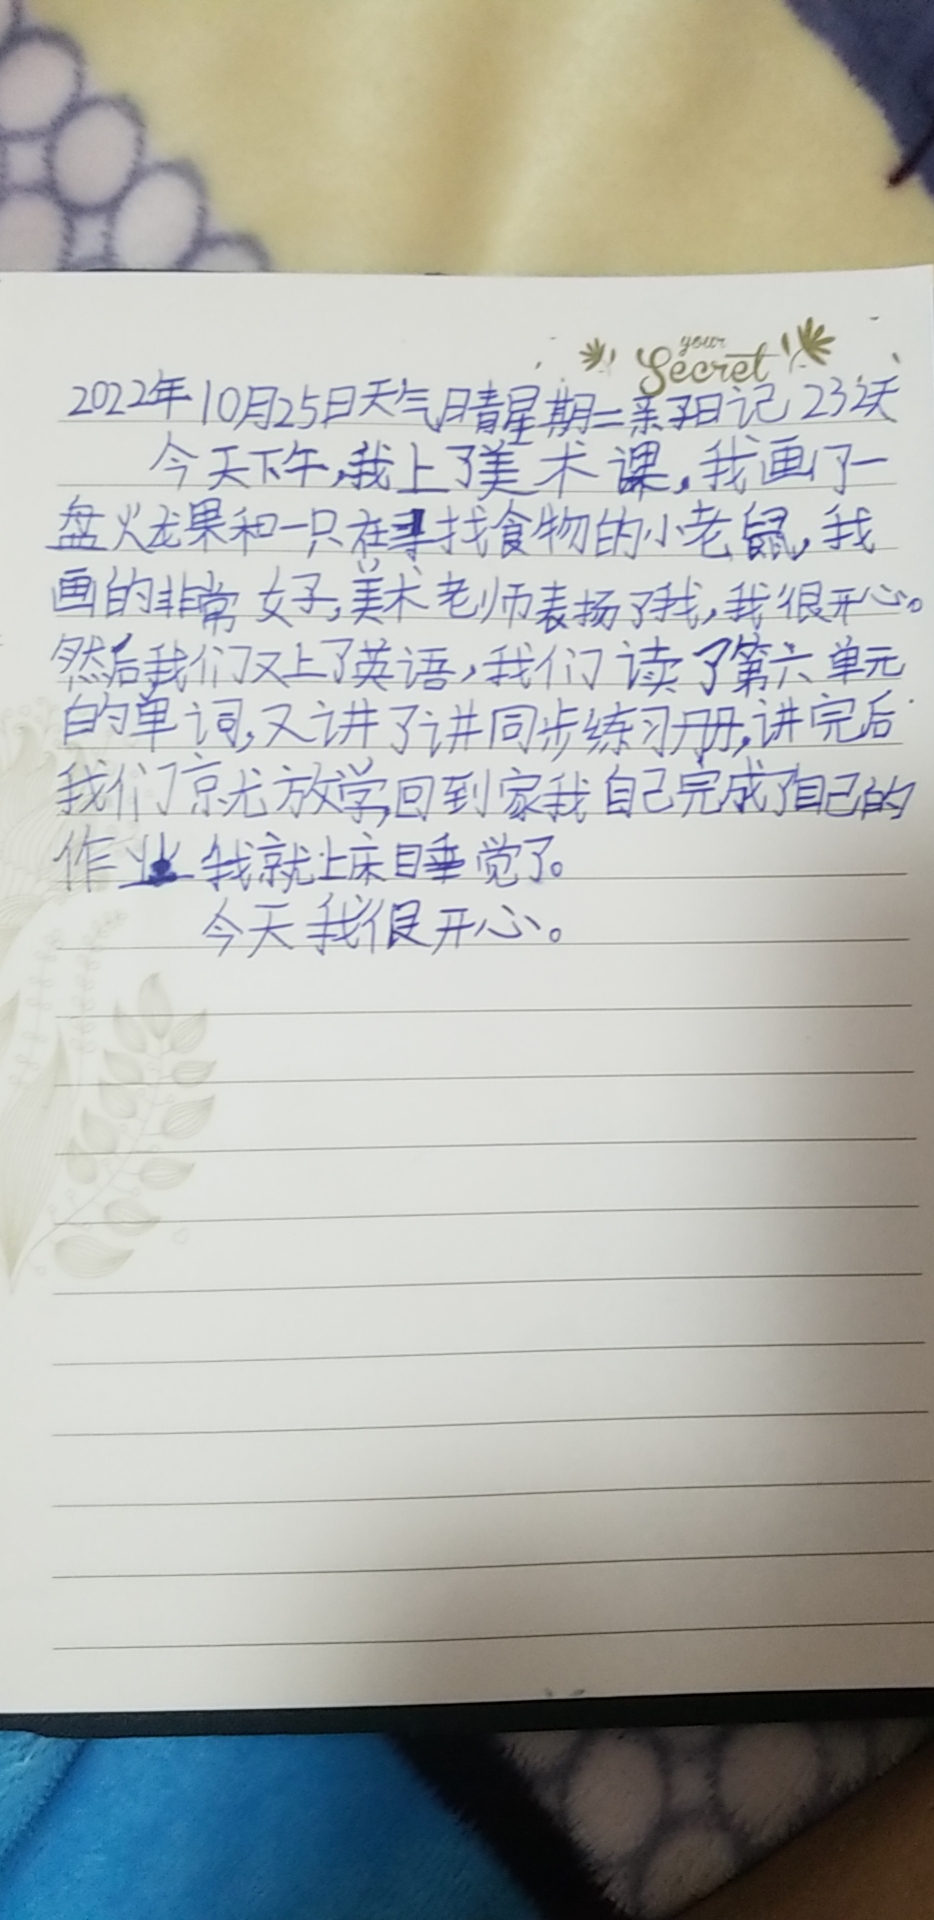 your
Secret
2022年10月25日天气晴星期二亲子日记232天
今天下午,我上了美术课,我画了一
盘火龙果和一只在寻找食物的小老鼠,我
画的非常好,美术老师表扬了我,我很开心。
然后我们又上了英语,我们读了第六单元
的单词,又讲了讲同步练习册,讲完后
我们就放学,回到家我自己完成了自己的
作业我就上床睡觉了。
今天我很开心。